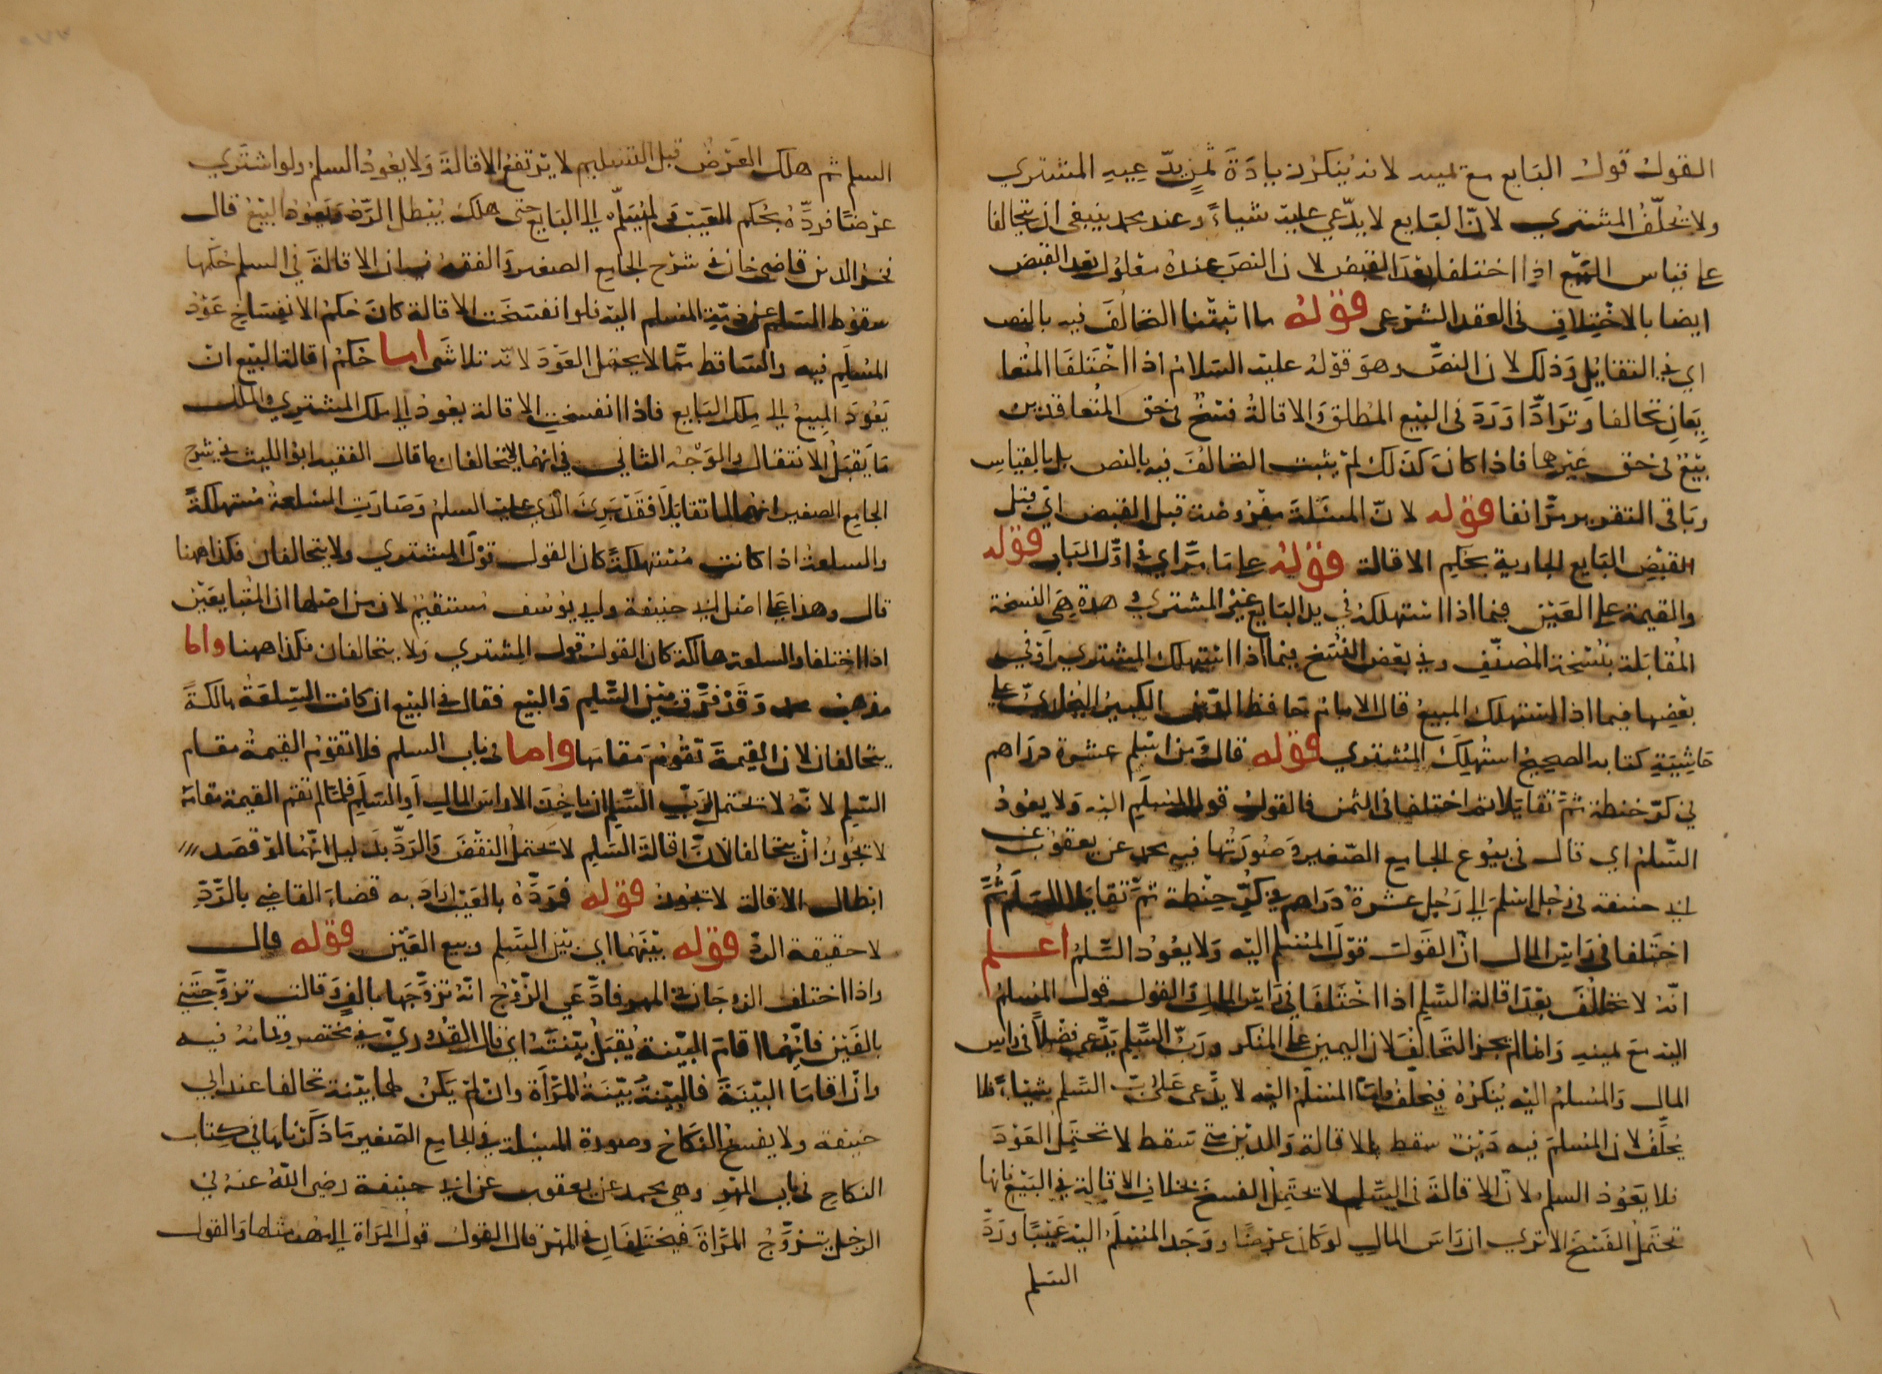 القول قول البايع مع يمينه لانه ينكر زيادة ثمن يدعيه المشتري
ولا يُحلَّف المشتري لانّ البَايع لا يدّعي عليه شياءً وعند محمد ينبغي ان يتحالفا
على قياس البَيْع اذا اختلفا بَعْدَ القَبض لان النصَ عنده معلول بعد القبض
ايضا بالاختِلاف في العقد الشرعى قوله ما اثبتنا التحالفَ فيه بالنص
اي في التقايُل وَذلك لان النصَّ وهوَ قوْلهُ عليه السلام اذا اخْتَلَفَا المُتَعا
يِعَانِ تحالفا وَتَرَادَّا وَرَدَ في البيع المُطلق وَالاقالةُ فسْخٌ في حق المُتعاقدين
بَيْعٌ في حق غيْرهما فاذا كانَ كذلك لمْ يثبت التحالُفَ فيه بالنص بل بالقياسِ
وبَاقى التقرير مرَّ انفا قوله لانّ المسئلة مفْرُوضة قبل القبض اي قبل
القبْضِ البَايع الجارية بحكم الاقالة قوله على مَا مرَّ اي في اوّل البَاب قوله
والقيمة على العَيْن فيما اذا استهلكهُ في يد البَايع غيْرُ المشتري وهذه هِيَ النسخة
المُقابَلة بنُسْخة المُصنّف وفي بعض النُسَخ فيما اذا استهلك المشتري اوْ في
بعْضِها فيما اذا استهلك المبيعُ قال الامَام حَافظ الدّين الكبيرُ البُخاريّ على
حَاشِيَةِ كتابه الصحيحُ استُهلِكَ المُشتري قوله قال وَمن اسْلم عشرة دراهم
في كرّ حنطة ثمّ تقايَلا ثم اختلفا في الثمن فالقول قول المسْلَم اليه وَلا يعُودُ
السَّلمُ اي قال في بيُوع الجامع الصّغير وَصُورَتُها فيه محمد عن يعقوب عن
ابي حنيفة في رَجُل اسْلمَ الى رَجُل عشرة دَرَاهم في كُرِّ حِنْطة ثمَّ تقايَلا السَلَم ثُمَّ
اختَلفا في رَاسِ المال انّ القَولَ قوْلُ المُسْلم اليْه وَلا يعُودُ السَّلمُ اعلم
انّهُ لا تخَالُفَ بعْدَ اقالة السَّلم اذا اخْتَلَفَا في رَاسِ المَالِ وَالقول قول المسلم
اليه معَ يمينه وَانما لم يجز التَحالُفُ لان اليمين على المُنكر وربّ السَّلم يدّعي فضْلاً في راس
المال وَالمُسْلمُ اليْه يُنكرُهُ فيُحلّفُ وَامّا المُسْلمُ اليْه لا يدَّعى عَلى ربّ السَّلم شيئاً فلا
يُحلَّفُ لان المُسلمَ فيه دَيْنٌ سقط بالاقالة وَالدّين متى سَقط لا تحتمِل العَوْدَ
فلا يَعُوْدُ السلم لانّ الاقالةَ في السَّلم لا تحتَمِلُ الفسخَ بخلاف الاقالة في البَيْع فانها
تحتملُ الفَسْخَ الا ترى ان رَاسَ المالِ لوْ كانَ عرْضًا ووَجَدَ المُسْلمُ اليْه عَيْبًا وردَّ
السلم
السلم ثم هلك العَرْضُ قبل التسليم لا يرتفعُ الاقالةَ وَلا يعُودُ السلمُ ولو اشترَي
عرْضًا فردّهُ بحُكم العَيْب وَلم يُسَلّمه الى البَايع حتى هلك يُبْطل الرَّدّ وَيَعُودُ البَيْعُ قال
فخر الدين قاضي خان في شرْح الجامع الصغير وَالفقه فيه ان الاقالةَ في السلم حكمُها
سقوط المسلم عن ذمّة المُسْلم اليه فلو انفسَخَت الاقالة كانَ حُكمُ الانفِسَاخِ عَوْدُ
المُسْلَم فيه والسَّاقط ممّا لا يحتمل العَوْدَ لانّه تلاشَى اما حُكمُ اقالة البَيْع انْ
يَعُودَ المبيعُ الى مِلك البَايع فاذا انفسَخت الاقالة يعُودُ الى ملك المشتري وَالملك
مَا يَقبَلُ الانتقال والوَجْه الثاني في انهما لا يتحالفان ما قال الفقيه ابو الليث في شرح
الجامع الصغير انهما لما تقايَلا فَقَدْ بَرِئَ الذي عليه السلمُ وَصَارَتِ السلعةُ مُستهلكةً
والسلعة اذا كانت مُسْتهلكةً كان القول قوْلَ المشتري ولا يتحالفان فكذا ههنا
قال وهذا على اصْل ابي حنيفة وابي يوسُف مُستقيمٌ لان من اصْلهما ان المُتبايعَيْن
اذا اختلفا والسلعة هالكة كان القولُ قول المشتري وَلا يتحالفان فكذا ههنا واما
مذهب محمد وَقَدْ فرَّق بين السَّلم وَالبَيْع فقال في البيع ان كانت السِلعَةُ هالكةً
يتحالفان لان القِيمَةَ تقُومُ مَقامَها واما في باب السلم فلا تقوم القيمةُ مقام
السّلم لانّه لا تحتمل لربّ السَّلم ان ياخذَ الا راسَ المالِ اوِ السَّلَم فلمّا لم تقم القيمة مقامَهُ
لا يجُوزُ انْ يتحالفا لانّ اقالةَ السَّلم لا تحتملُ النقْضَ وَالرَدَّ بدَليل انّهُما لو قصَدا
ابْطال الاقالة لا تجُوز قوله فرَدَّهُ بالعَيْب ارادَ به قضاءَ القاضِي بالرَّدِّ
لا حقيقة الردّ قوله بيْنَهما اي بَيْن السَّلم وبيع العَيْن قوله قال
واذا اختلف الزوجَان في المهر فادَّعَى الزّوْجُ انّهُ تزَوَّجَها بالفٍ وَقالت تزوّجَني
بالفَيْن فايُّهما اقامَ البيّنة يُقبَلُ بيّنتُهُ اي قال القُدُوريّ في مختصره وتمامُهُ فيه
وانْ اقامَا البَيّنَةَ فالبَيّنَةُ بَيّنَةُ المَرْأَة وانْ لمْ يَكُن لهما بيّنة تحالفا عند ابي
حنيفة ولا يفسخُ النكاحُ وصورة المسئلة في الجامع الصّغير مَا ذكرْناها في كتاب
النكاح في باب المهْر وهى محمد عن يعقوب عَن ابي حنيفة رضى اللّهُ عنهُ في
الرجل يتزَوَّجُ المرْاةَ فيَختَلِفَانِ في المهْر قال القول قولُ المرَاة الى مهْر مثلها وَالقول